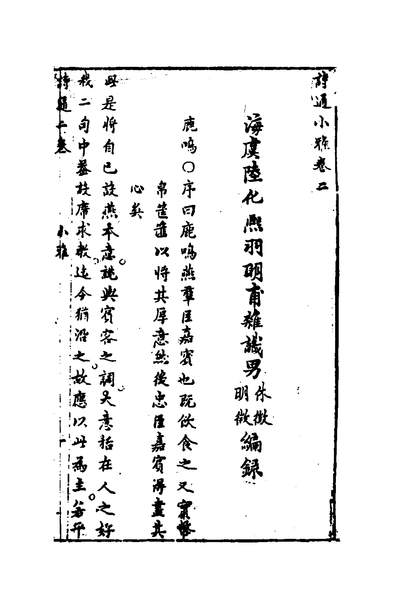 詩通小雅卷二
海虞陸化熙羽明甫雜識男
休徵
明徵
編錄
鹿鳴〇序曰鹿鳴燕羣臣嘉賓也既飲食之又實幣
帛筐篚以將其厚意然後忠臣嘉賓得盡其
心矣
此是將自己設燕本意説與賓客之詞大意括在人之好
我二句中蓋設席求教迄今猶沿之故應以此為主若平
詩通二卷
小雅